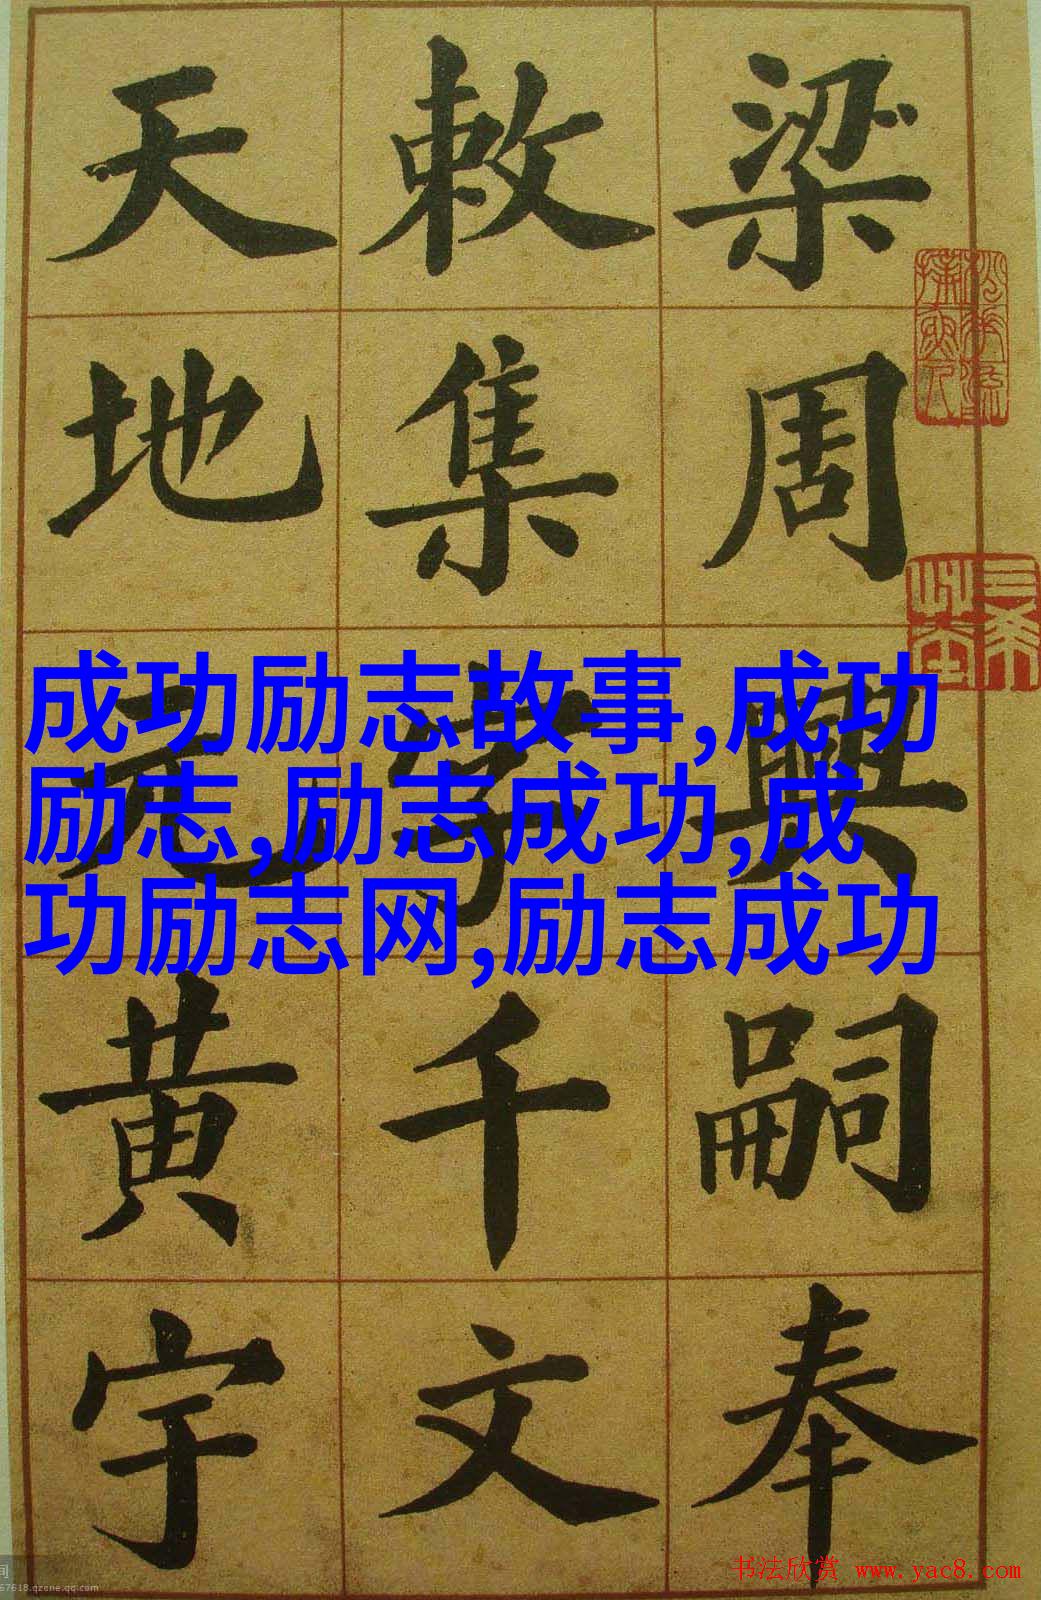 梁周興嗣奉
敕集字千文
天地元黄宇
成功励志故事,成功
励志,励志成功,成
功励志网,励志成功
书法欣赏 www.yac8.com
67618.qzone.qq.com